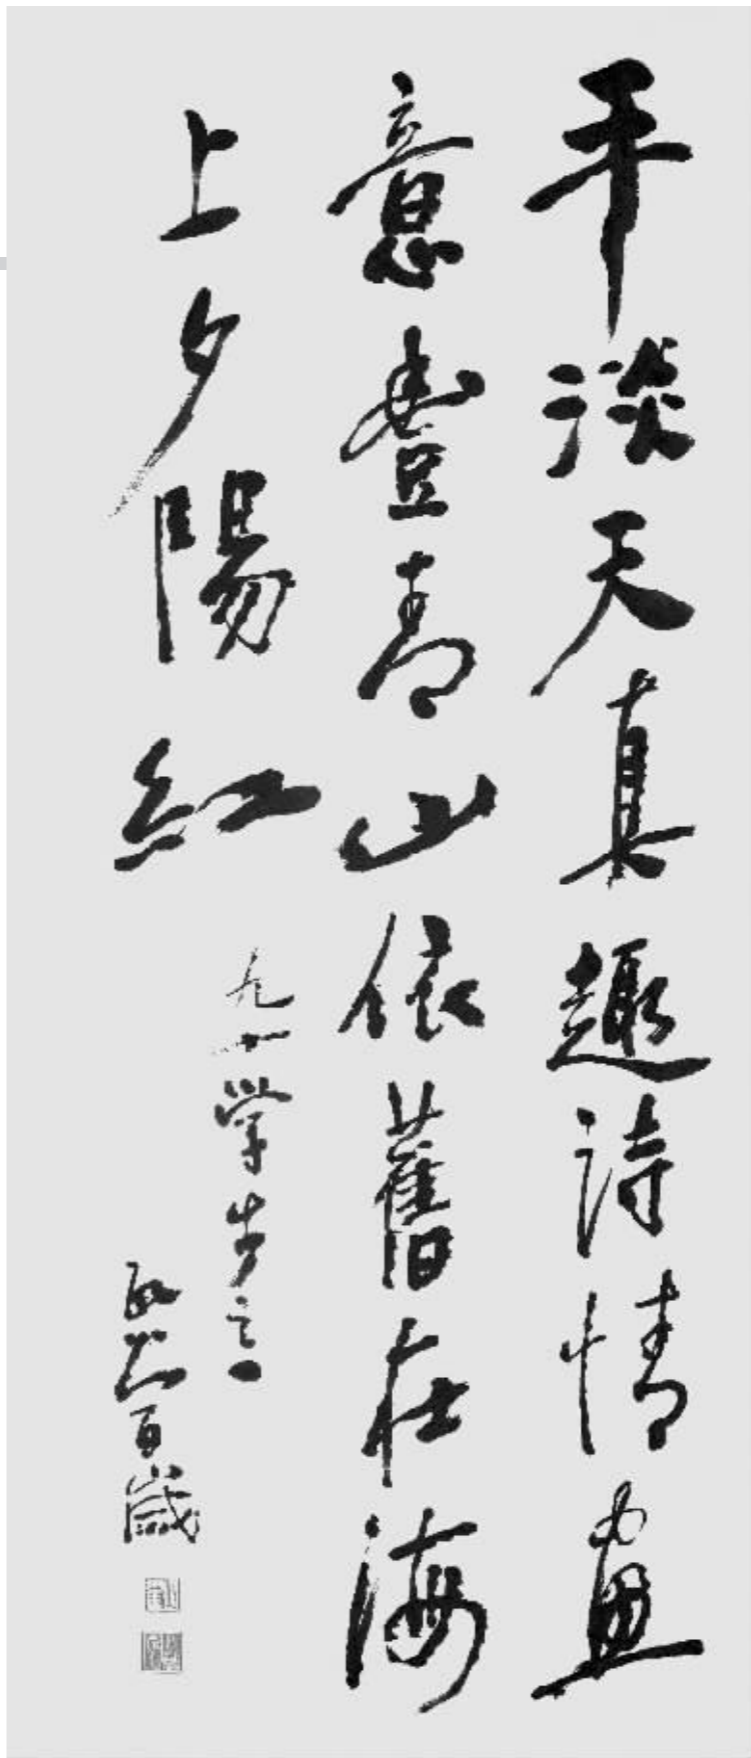 平淡天真趣詩情畫
意豐青山依舊在海
上夕陽紅
九十学步之一
百歲